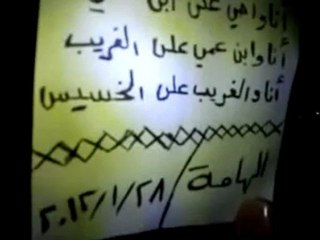 أنا واخي على ابن
أنا وابن عمي على الغريب
أنا والغريب على الخسيس
الهامة / ٢٠١٢/١/٢٨